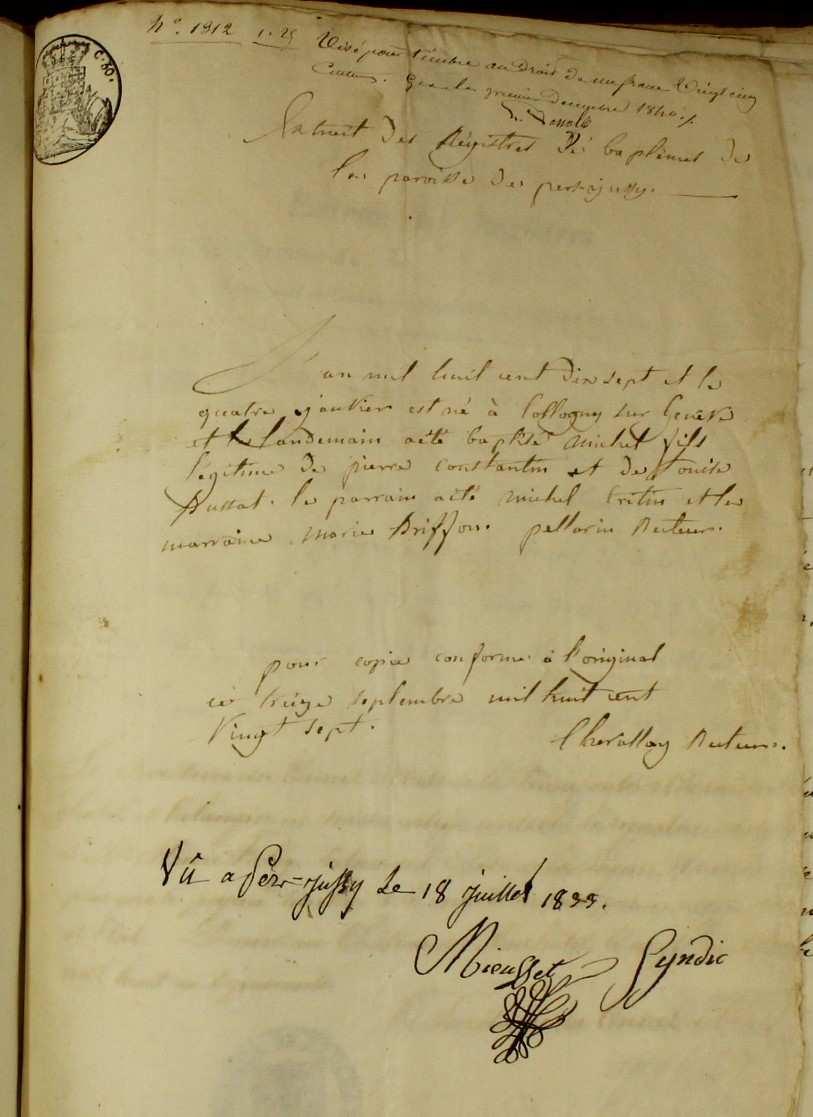 C. 60.
N.º 1812 1.25 Visé pour timbre au Droit de un franc Vingt cinq
Centimes. Gex le premier Décembre 1840 /.
Extrait des Régistres de baptêmes de
la paroisse de pers-jussy.
L'an mil huit cent dix sept et le
quatre janvier est né à Collogny sur Genève
et le landemain a été baptisé michel fils
légitime de pierre constantin et de Louise
Dussat. le parrain a été michel Critin et la
marraine marie Briffon. pellarin Recteur.
pour copie conforme à l'original
ce treize septembre mil huit cent
Vingt sept.
Chevallay Recteur.
Vû a Pers-jussy Le 18 juillet 1833.
Mieusset Syndic